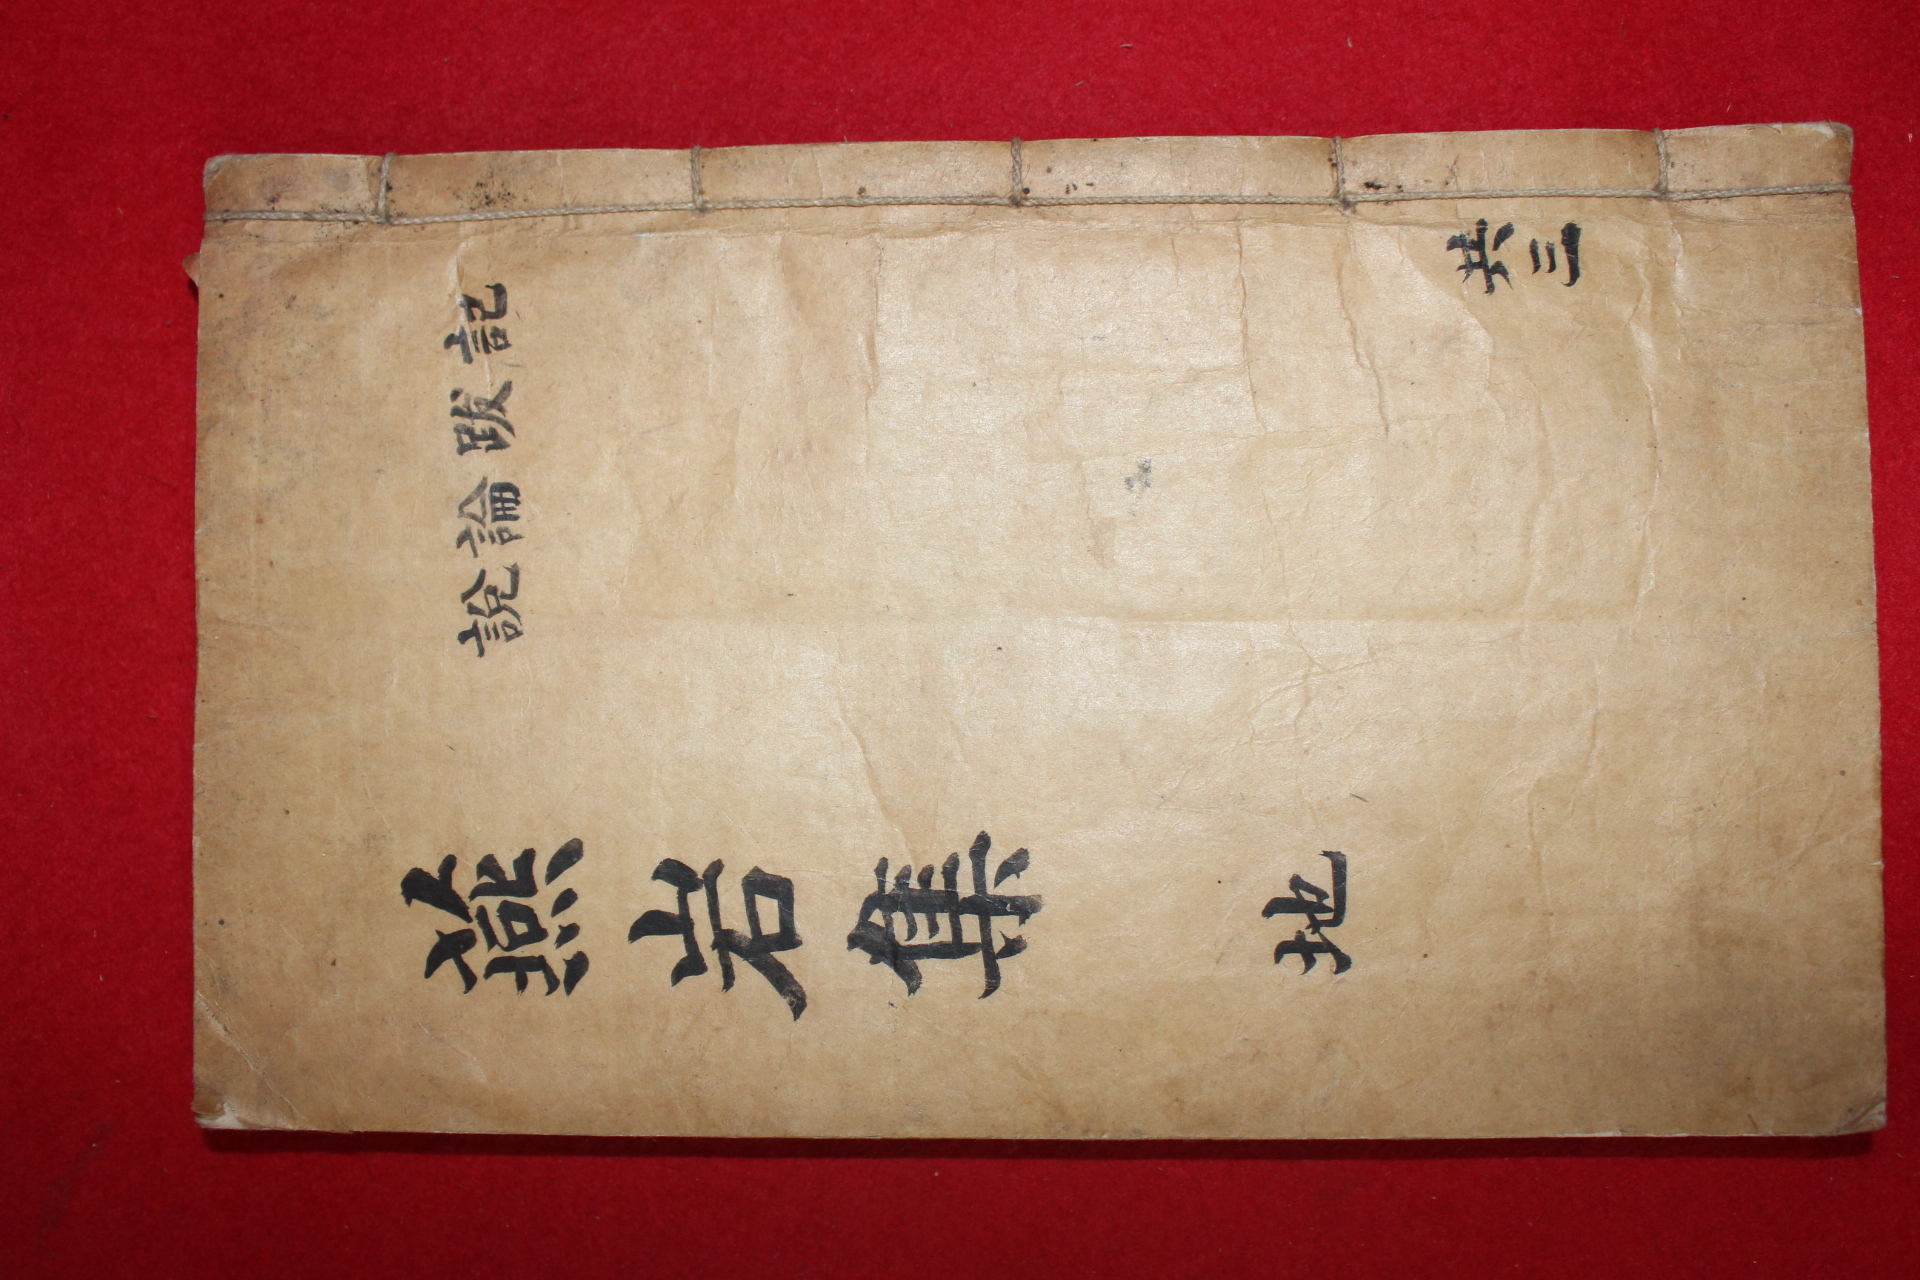 記跋論說
燕岩集 地
共三